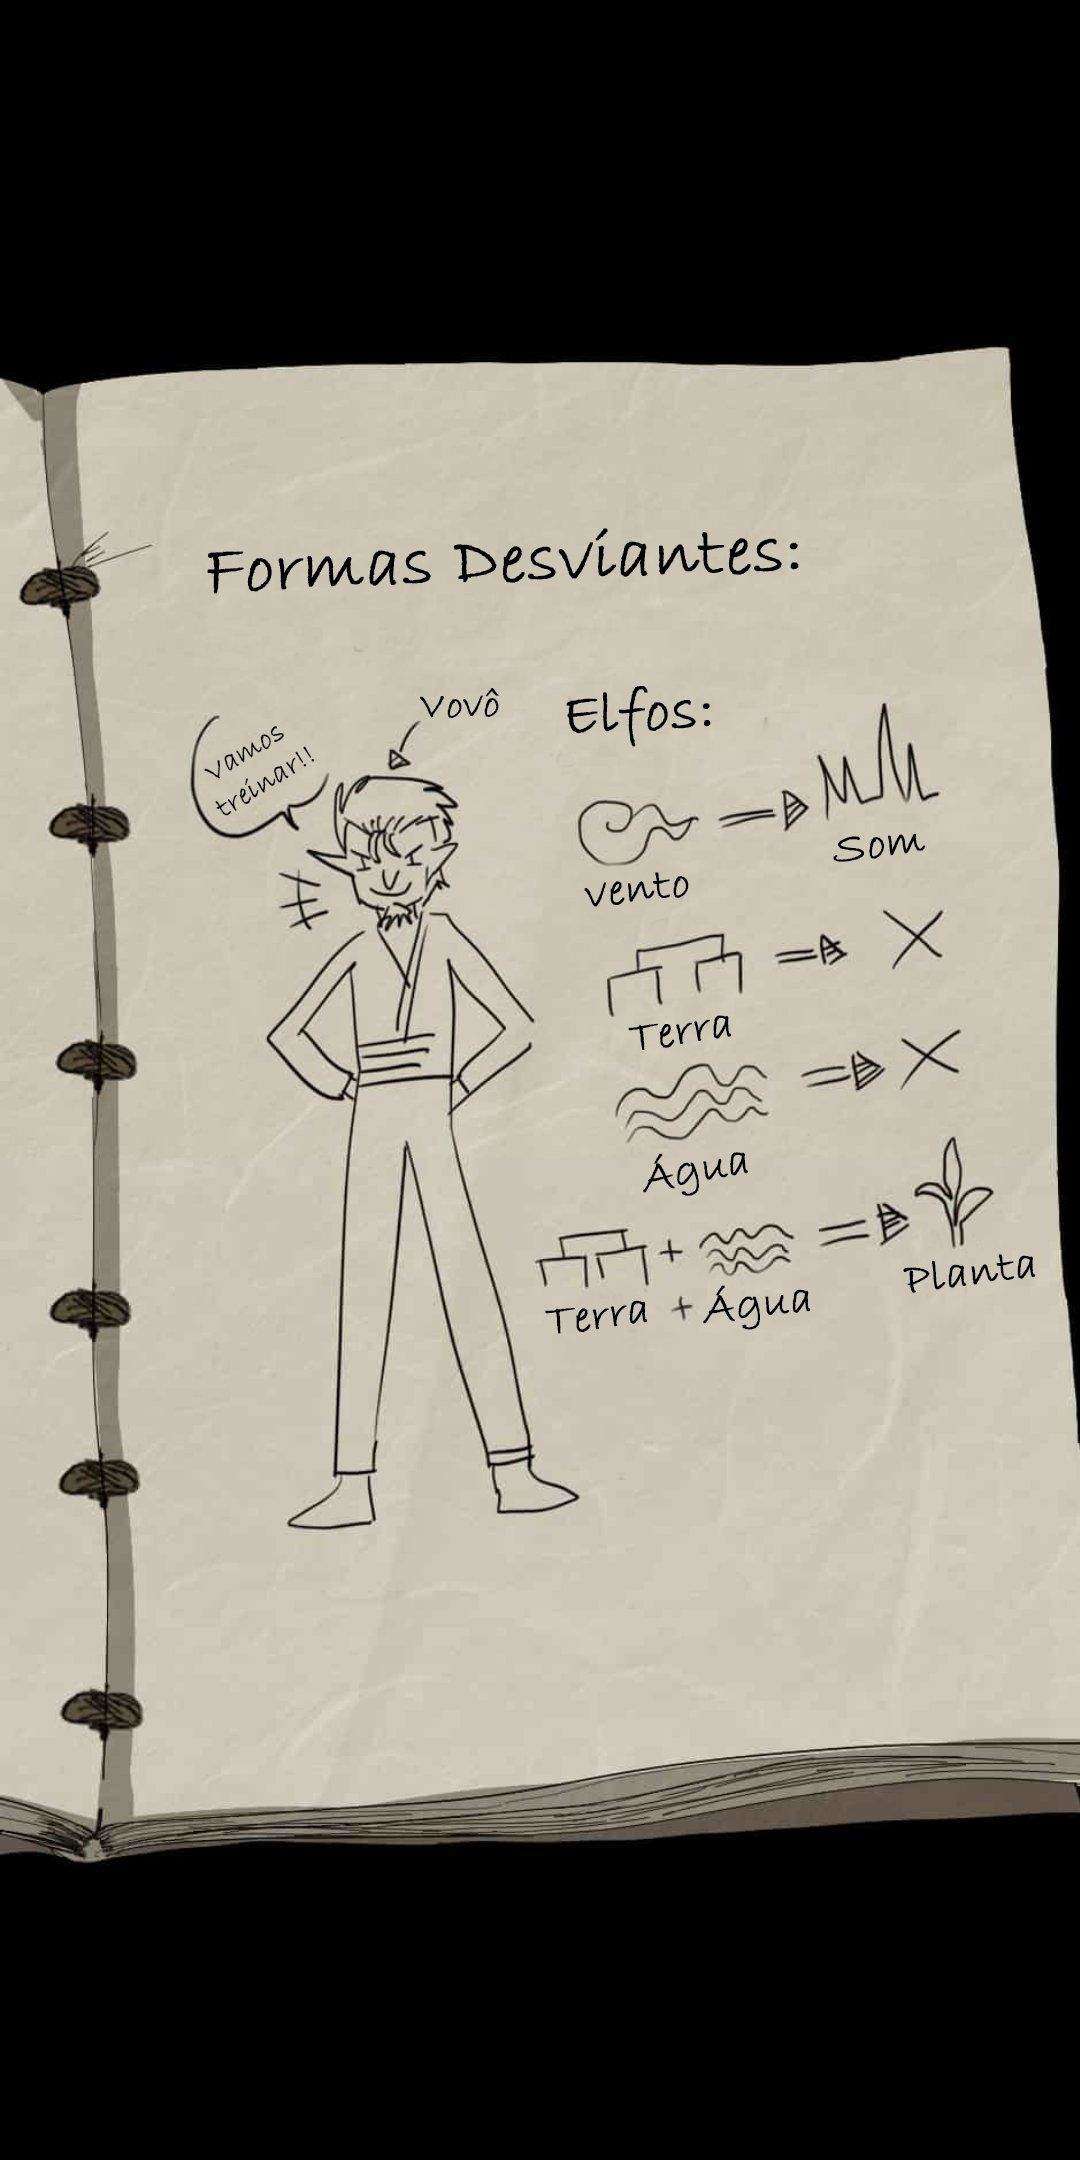 Formas Desviantes:
Vovô
vamos
treinar!!
Elfos:
Som
vento
Terra
Água
Planta
Terra + Água